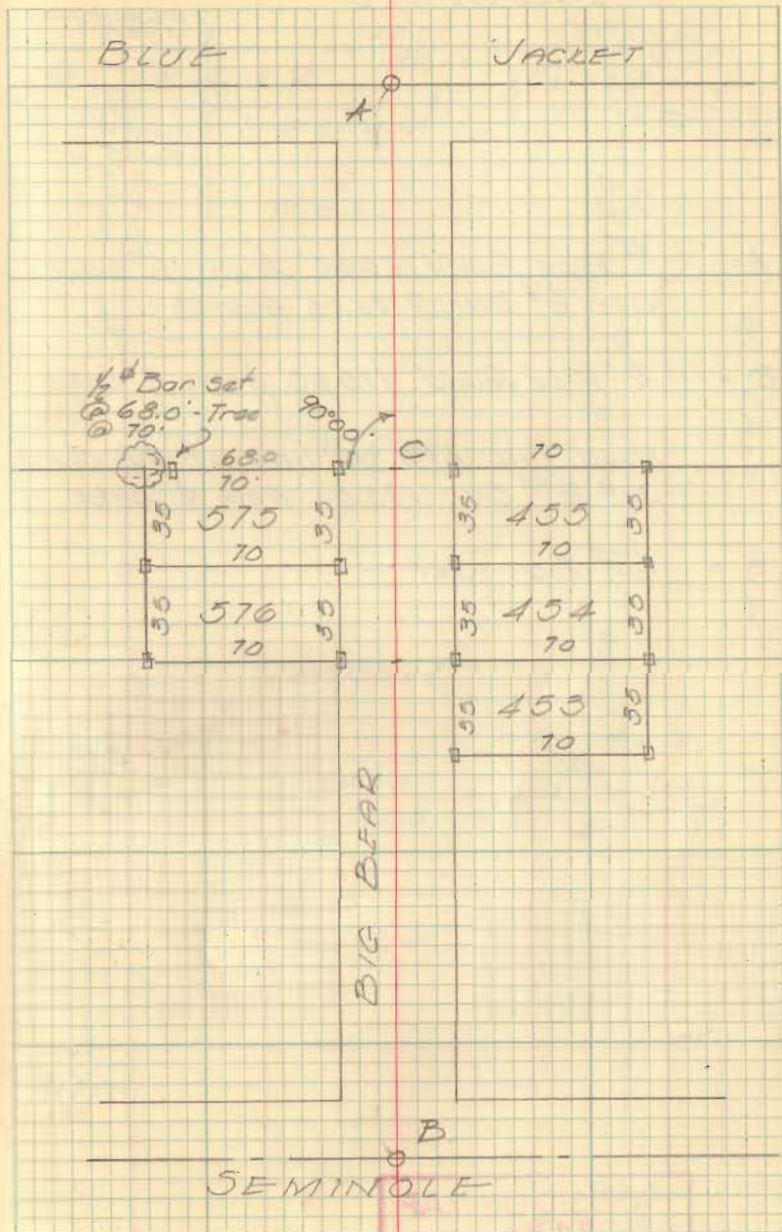 BLUE JACKET
A
1/2" Bar set
@ 68.0' - Tree
@ 70'
90°00'
68.0
70'
C
70
35 575 35
35 455 35
70
70
35 576 35
35 454 35
70
70
35 453 35
70
BIG BEAR
B
SEMINOLE